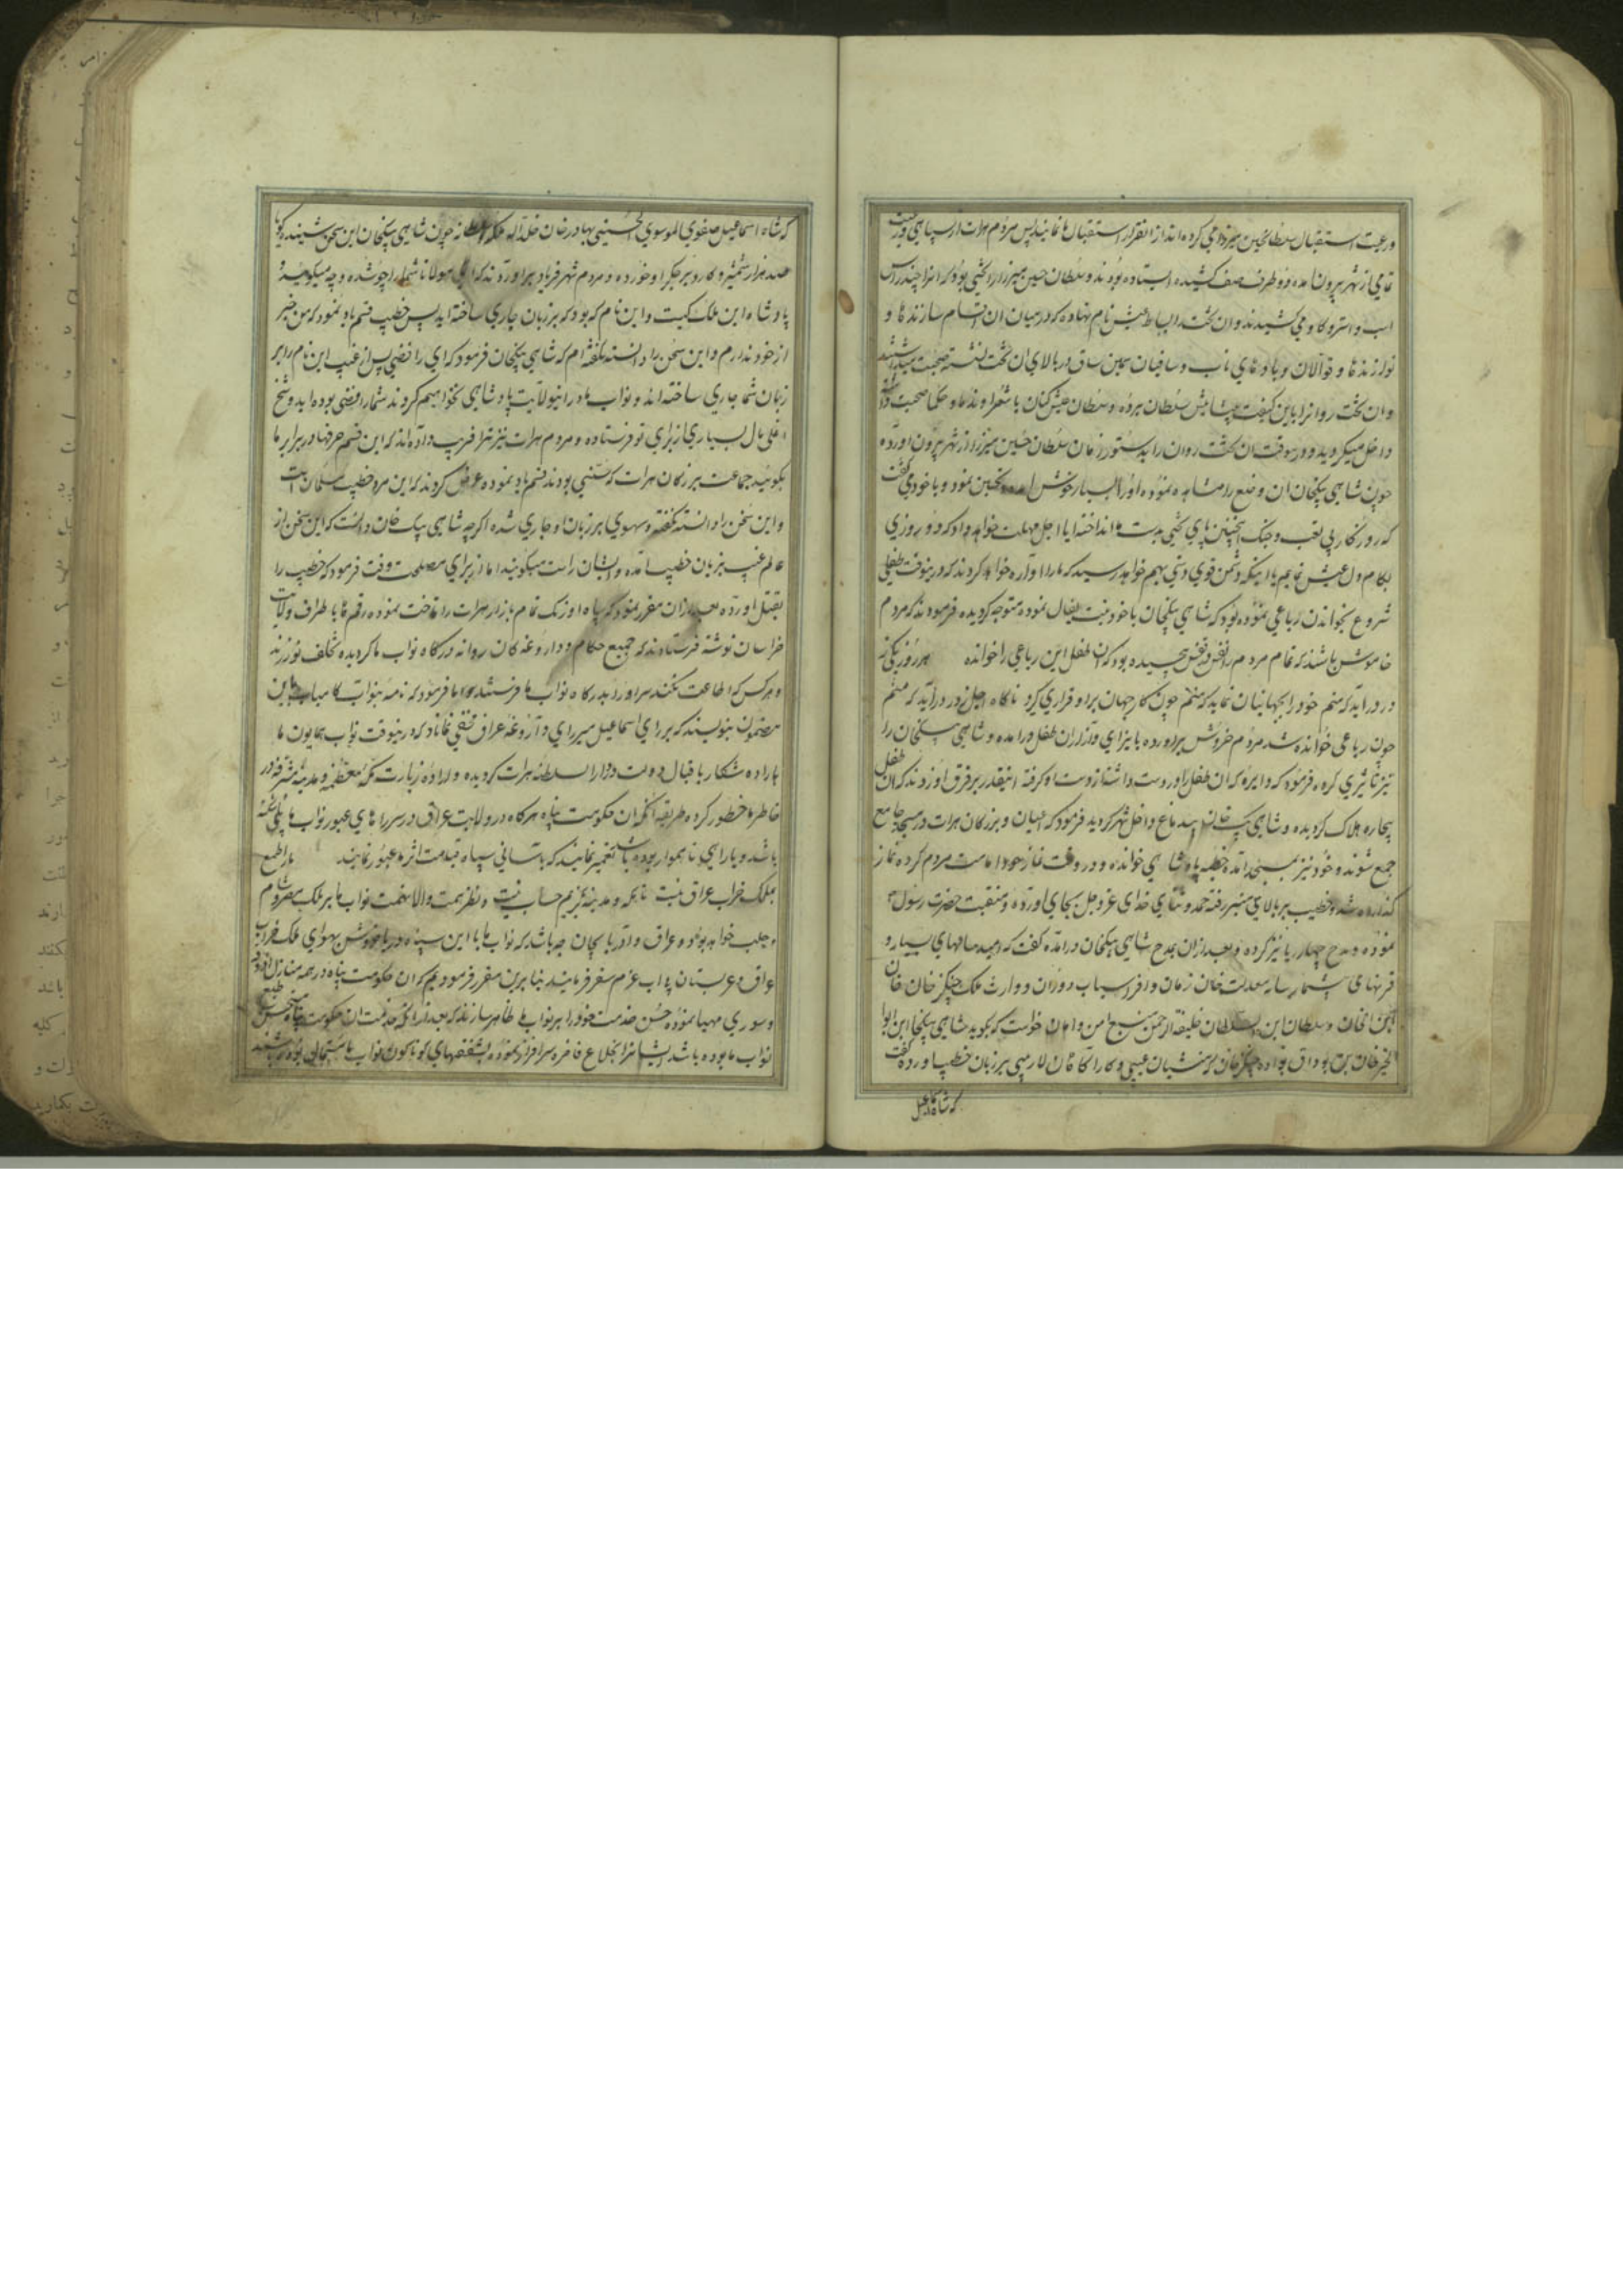 ورعیت استقبال سلطانحسین میرزا می کرده اند از انقرار استقبال ما نمایند پس مردم هرات از سپاهی و رعیت
تمامی از شهر بیرون امده دو طرف صف کشیده ایستاده بودند و سلطان حسین میرزا را تختی بود که انرا چند راس
اسب و استر و گاو می کشیدند و ان تخت را بساط عیش نام نهاده که در میان ان اقسام سازندها و
نوازندها و قوالان و بادهای ناب و ساقیان سیمین ساق در بالای ان تخت نشسته صحبت میداشتند
و ان تخت روانرا باین کیفیت پیشاپیش سلطان میبرده و سلطان عیش کنان با شعرا و ندما و حکما صحبت داشته
داخل میگردید و در ینوقت ان تخت روان را بدستور زمان سلطان حسین میرزا از شهر بیرون اورده
چون شاهی بیکخان ان وضع را مشاهده نموده او را بسیار خوش امده تحسین نمود و با خود می گفت
که روزگار بی تعب و جنگ اینچنین پای تختی بدست ما انداخته ایا اجل مهلت خواهد داد که دو روزی
بکام دل عیش نمایم یا اینکه دشمن قوی دستی بهم خواهد رسید که ما را اواره خواهد کردند که درینوقت طفلی
شروع بخواندن رباعی نموده بود که شاهی بیکخان با خود نیت بفال نموده متوجه گردیده فرمودند که مردم
خاموش باشند که تمام مردم را نفس در قفس پیچیده بود که ان طفل این رباعی را خوانده هر روز یکی ز
در دراید که منم خود را بجهانیان نماید که منم چون کار جهان برو قراری گیرد ناگاه اجل ز در دراید که منم
چون رباعی خوانده شد مردم خروش براورده بایزای و ازاران طفل درامده و شاهی بیکخان را
نیز تاثیری کرده فرمود که دایره که ان طفل در دست داشت از دست او گرفته انقدر بر فرق او زدند که ان طفل
بیچاره هلاک گردیده و شاهی بیک خان داخل شهر گردید فرمود که اعیان و بزرگان هرات در مسجد جامع
جمع شوند و خود نیز بمسجد امده خطبه پادشاهی خوانده و در وقت نماز خود امامت مردم کرده نماز
گذارده شد و خطیب بر بالای منبر رفته حمد و ثنای خدای عز و جل بجای اورده و منقبت حضرت رسول
نموده و مدح چهار یار نیز کرده و بعد ازان بمدح شاهی بیکخان درامده گفت که امید سالهای بسیار و
قرنهای بی شمار سایه معدلت خان زمان و افراسیاب دوران و وارث ملک چنگیز خان خان
ابن الخان و سلطان ابن السلطان خلیفة الرحمن منبع امن و امان خواست که بگوید شاهی بیکخان ابن ابوا
لخیر خان بن بوداق نواده چنگیزخان که منشیان غیبی و کاراگاهان لاریبی بر زبان خطیب اورده گفت
که شاه اسماعیل
که شاه اسماعیل صفوی الموسوی الحسینی بهادر خان خلد الله ملکه و سلطانه چون شاهی بیکخان این سخن شنیده گویا
صد هزار شمشیر و کارد بر جگر او خورده و مردم شهر فریاد براوردند که ای مولانا شما را چه شده و چه میگوئید و
پادشاه این ملک کیست و این نام که بود که بر زبان جاری ساخته اید پس خطیب قسم یاد نمود که من خبر
از خود ندارم و این سخن را دانسته نگفته ام که شاهی بیکخان فرمود که ای رافضی پس از غیب این نام را بر
زبان شما جاری ساخته اند و نواب ما در اینولایت پادشاهی نخواهیم کردند شما رافضی بوده اید و شیخ
اغلی مال بسیاری از برای تو فرستاده و مردم هرات نیز ترا فریب داده اند که این قسم حرفها در برابر ما
بگوئید جماعت بزرگان هرات که سنی بودند قسم یاد نموده عرض کردند که این مرد خطیب مسلمان است
و این سخن را دانسته نگفته و سهوی بر زبان او جاری شده اگرچه شاهی بیک خان دانست که این سخن از
عالم غیب بزبان خطیب امده و ایشان راست میگویند اما از برای مصلحت وقت فرمود که خطیب را
بقتل اورده بعد ازان مقرر نمود که سپاه اوزبک تمام بازار هرات را تاخت نموده رقم ها باطراف ولایات
خراسان نوشته فرستادند که جمیع حکام و داروغه کان روانه درگاه نواب ما گردیده تخلف نورزند
و هر کس که اطاعت نکند سر او را بدرگاه نواب ما فرستند و اما فرمود که نامه بنواب کامیاب باین
مضمون بنویسند که بر رای اسماعیل میرزای داروغه عراق مخفی نماند که درینوقت نواب همایون ما
باراده شکار باقبال و دولت وارد دارالسلطنه هرات گردیده و اراده زیارت مکه معظمه و مدینه مشرفه در
خاطر ما خطور کرده و طریقه انکه ان حکومت پناه هر گاه در ولایت عراق در سر راه های عبور نواب ما پلی شکسته
باشد و یا راهی ناهموار بوده باشد تعمیر نمایند که باسانی سپاه قیامت اثر ما عبور نمایند ما را طمع
بملک خراب عراق نیست تا بمکه و مدینه نگیریم حساب نیست و نظر همت والا نهمت نواب ما بر ملک مصر و شام
و حلب خواهد بود و عراق و اذربایجان چه باشد که نواب ما با این سپاه دریا خروش بهوای ملک خراب
عراق و عربستان پا بعزم سفر فرمایند بنا برین مقرر فرمودیم که ان حکومت پناه در همه منازل اذوقه
و سوری مهیا نموده حسن خدمت خود را بر نواب ما ظاهر سازند که بعد از انکه خدمت ان حکومت پناه مستحسن طبع
نواب ما بوده باشد ایشانرا بخلاع فاخره سرافراز نموده و بشفقتهای گوناگون نواب ما مستمال بوده باشند